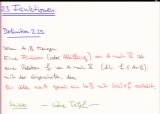 2.3 Funktionen
Definition 2.25
Seien A, B Mengen.
Eine Funktion (oder Abbildung) von A nach B ist
eine Relation f von A nach B (d.h. f ⊆ A×B)
mit der Eigenschaft, dass
für jedes a∈A genau ein b∈B mit (a,b)∈f existiert.